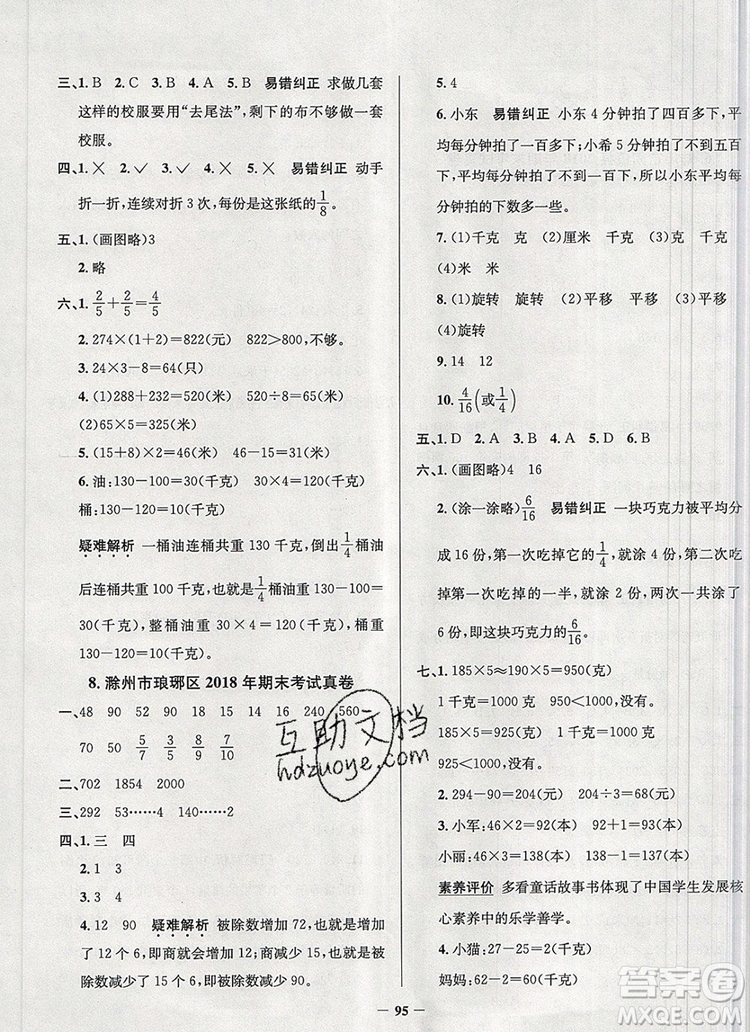 三、1. B　2. C　3. B　4. A　5. B　易错纠正　求做几套
这样的校服要用“去尾法”,剩下的布不够做一套
校服。
四、1. ╳　2. ✓　3. ✓　4. ╳　5. ╳　易错纠正　动手
折一折,连续对折 3 次,每份是这张纸的1/8。
五、1. (画图略)3
2. 略
六、1. 2/5+2/5=4/5
2. 274×(1+2)=822(元)　822>800,不够。
3. 24×3-8=64(只)
4. (1)288+232=520(米)　520÷8=65(米)
(2)65×5=325(米)
5. (15+8)×2=46(米)　46-15=31(米)
6. 油:130-100=30(千克)　30×4=120(千克)
桶:130-120=10(千克)
疑难解析　一桶油连桶共重 130 千克,倒出1/4桶油
后连桶共重 100 千克,也就是1/4桶油重 130-100=
30(千克),整桶油重 30×4=120(千克),桶重
130-120=10(千克)。
8. 滁州市琅琊区 2018 年期末考试真卷
一、48　90　52　190　15　14　16　240　560
70　50　5/7　3/5　8/9　7/10
二、702　1854　2000
三、292　53……4　140……2
四、1. 三　四
2. 1　3
3. 3　4
4. 12　90　疑难解析　被除数增加 72,也就是增加
了 12 个 6,即商就增加 12;商减少 15,也就是被
除数减少了 15 个 6,即被除数减少 90。
5. 4
6. 小东　易错纠正　小东 4 分钟拍了四百多下,平
均每分钟拍了一百多下;小希 5 分钟拍了不到五百
下,平均每分钟拍了不到一百下,所以小东平均每
分钟拍的下数多一些。
7. (1)千克　克　(2)厘米　千克　(3)克　千克
(4)米　米
8. (1)旋转　旋转　(2)平移　平移　(3)平移
(4)旋转
9. 14　12
10. 4/16(或1/4)
五、1. D　2. A　3. C　4. A　5. D　6. B
六、1. (画图略)4　16
2. (涂一涂略)6/16　易错纠正　一块巧克力被平均分
成 16 份,第一次吃掉它的1/4,就涂 4 份,第二次吃
掉第一次吃掉的一半,就涂 2 份,两次一共涂了
6 份,即这块巧克力的6/16。
七、1. 185×5=925(克)　925+90=1015(克)
1 千克=1000 克　1015>1000　没有
185×5=925(克)　1 千克=1000 克
925<1000　没有
2. 294-90=204(元)　204÷2=102(元)
3. 小军:46×2=92(本)　92+1=93(本)
小丽:46×3=138(本)　138-50=88(本)
素养评价　多看童话故事书体现了中国学生发展核
心素养中的乐学善学。
4. 小猫:27-25=2(千克)
妈妈:62-2=60(千克)
95
互助文档
hdzuoye.com
答案圈
MXQE.COM